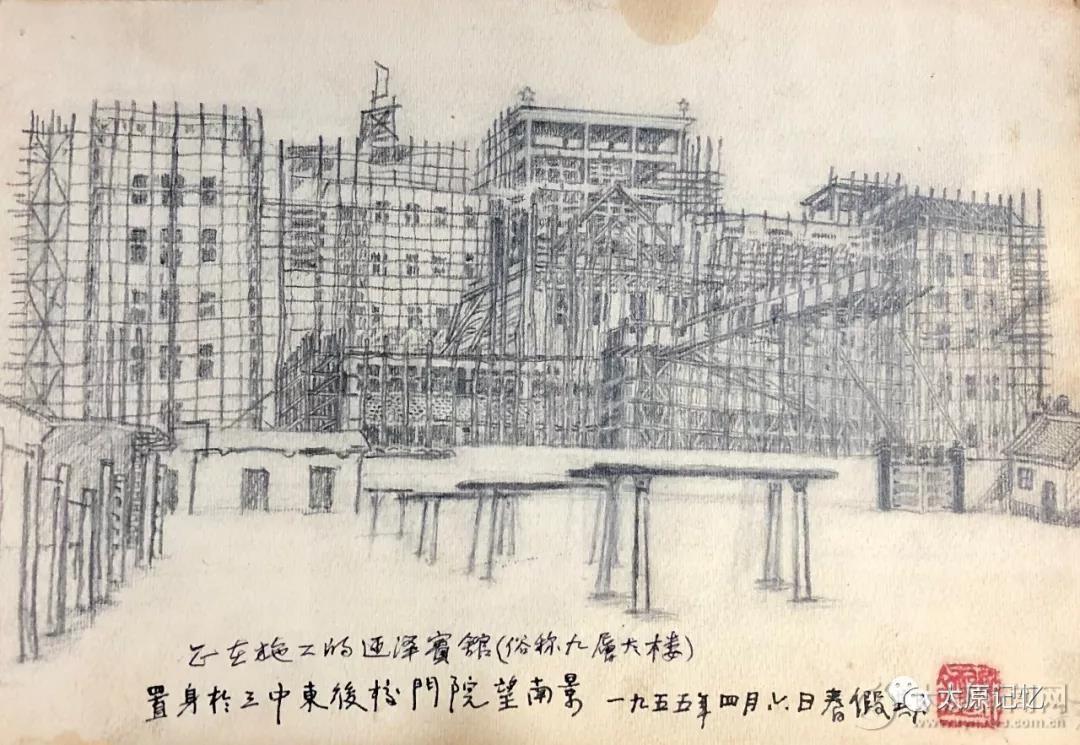 正在施工的迎泽賓舘(俗称九層大楼)
置身於三中東後校門院望南景 一九五五年四月六日春假
太原记忆